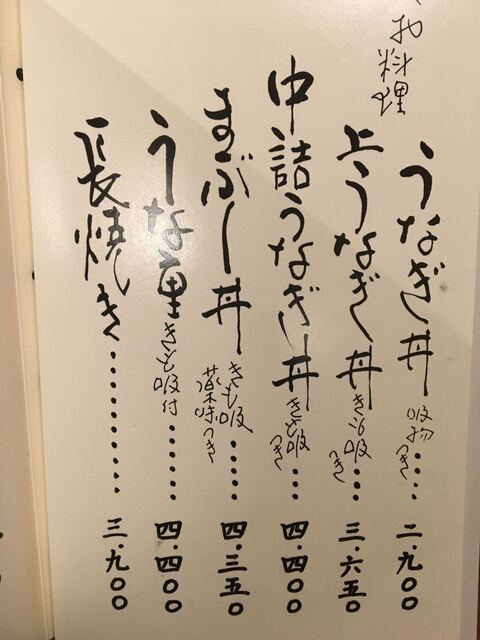 料理
うなぎ丼 吸物つき・・・・二.九〇〇
上うなぎ丼 きも吸つき・・三.六五〇
中詰うなぎ丼 きも吸つき・・・四.四〇〇
まぶし丼 きも吸 薬味つき・・・・・四.三五〇
うな重 きも吸付・・・・・・四.四〇〇
長焼き・・・・・・・・・三.九〇〇